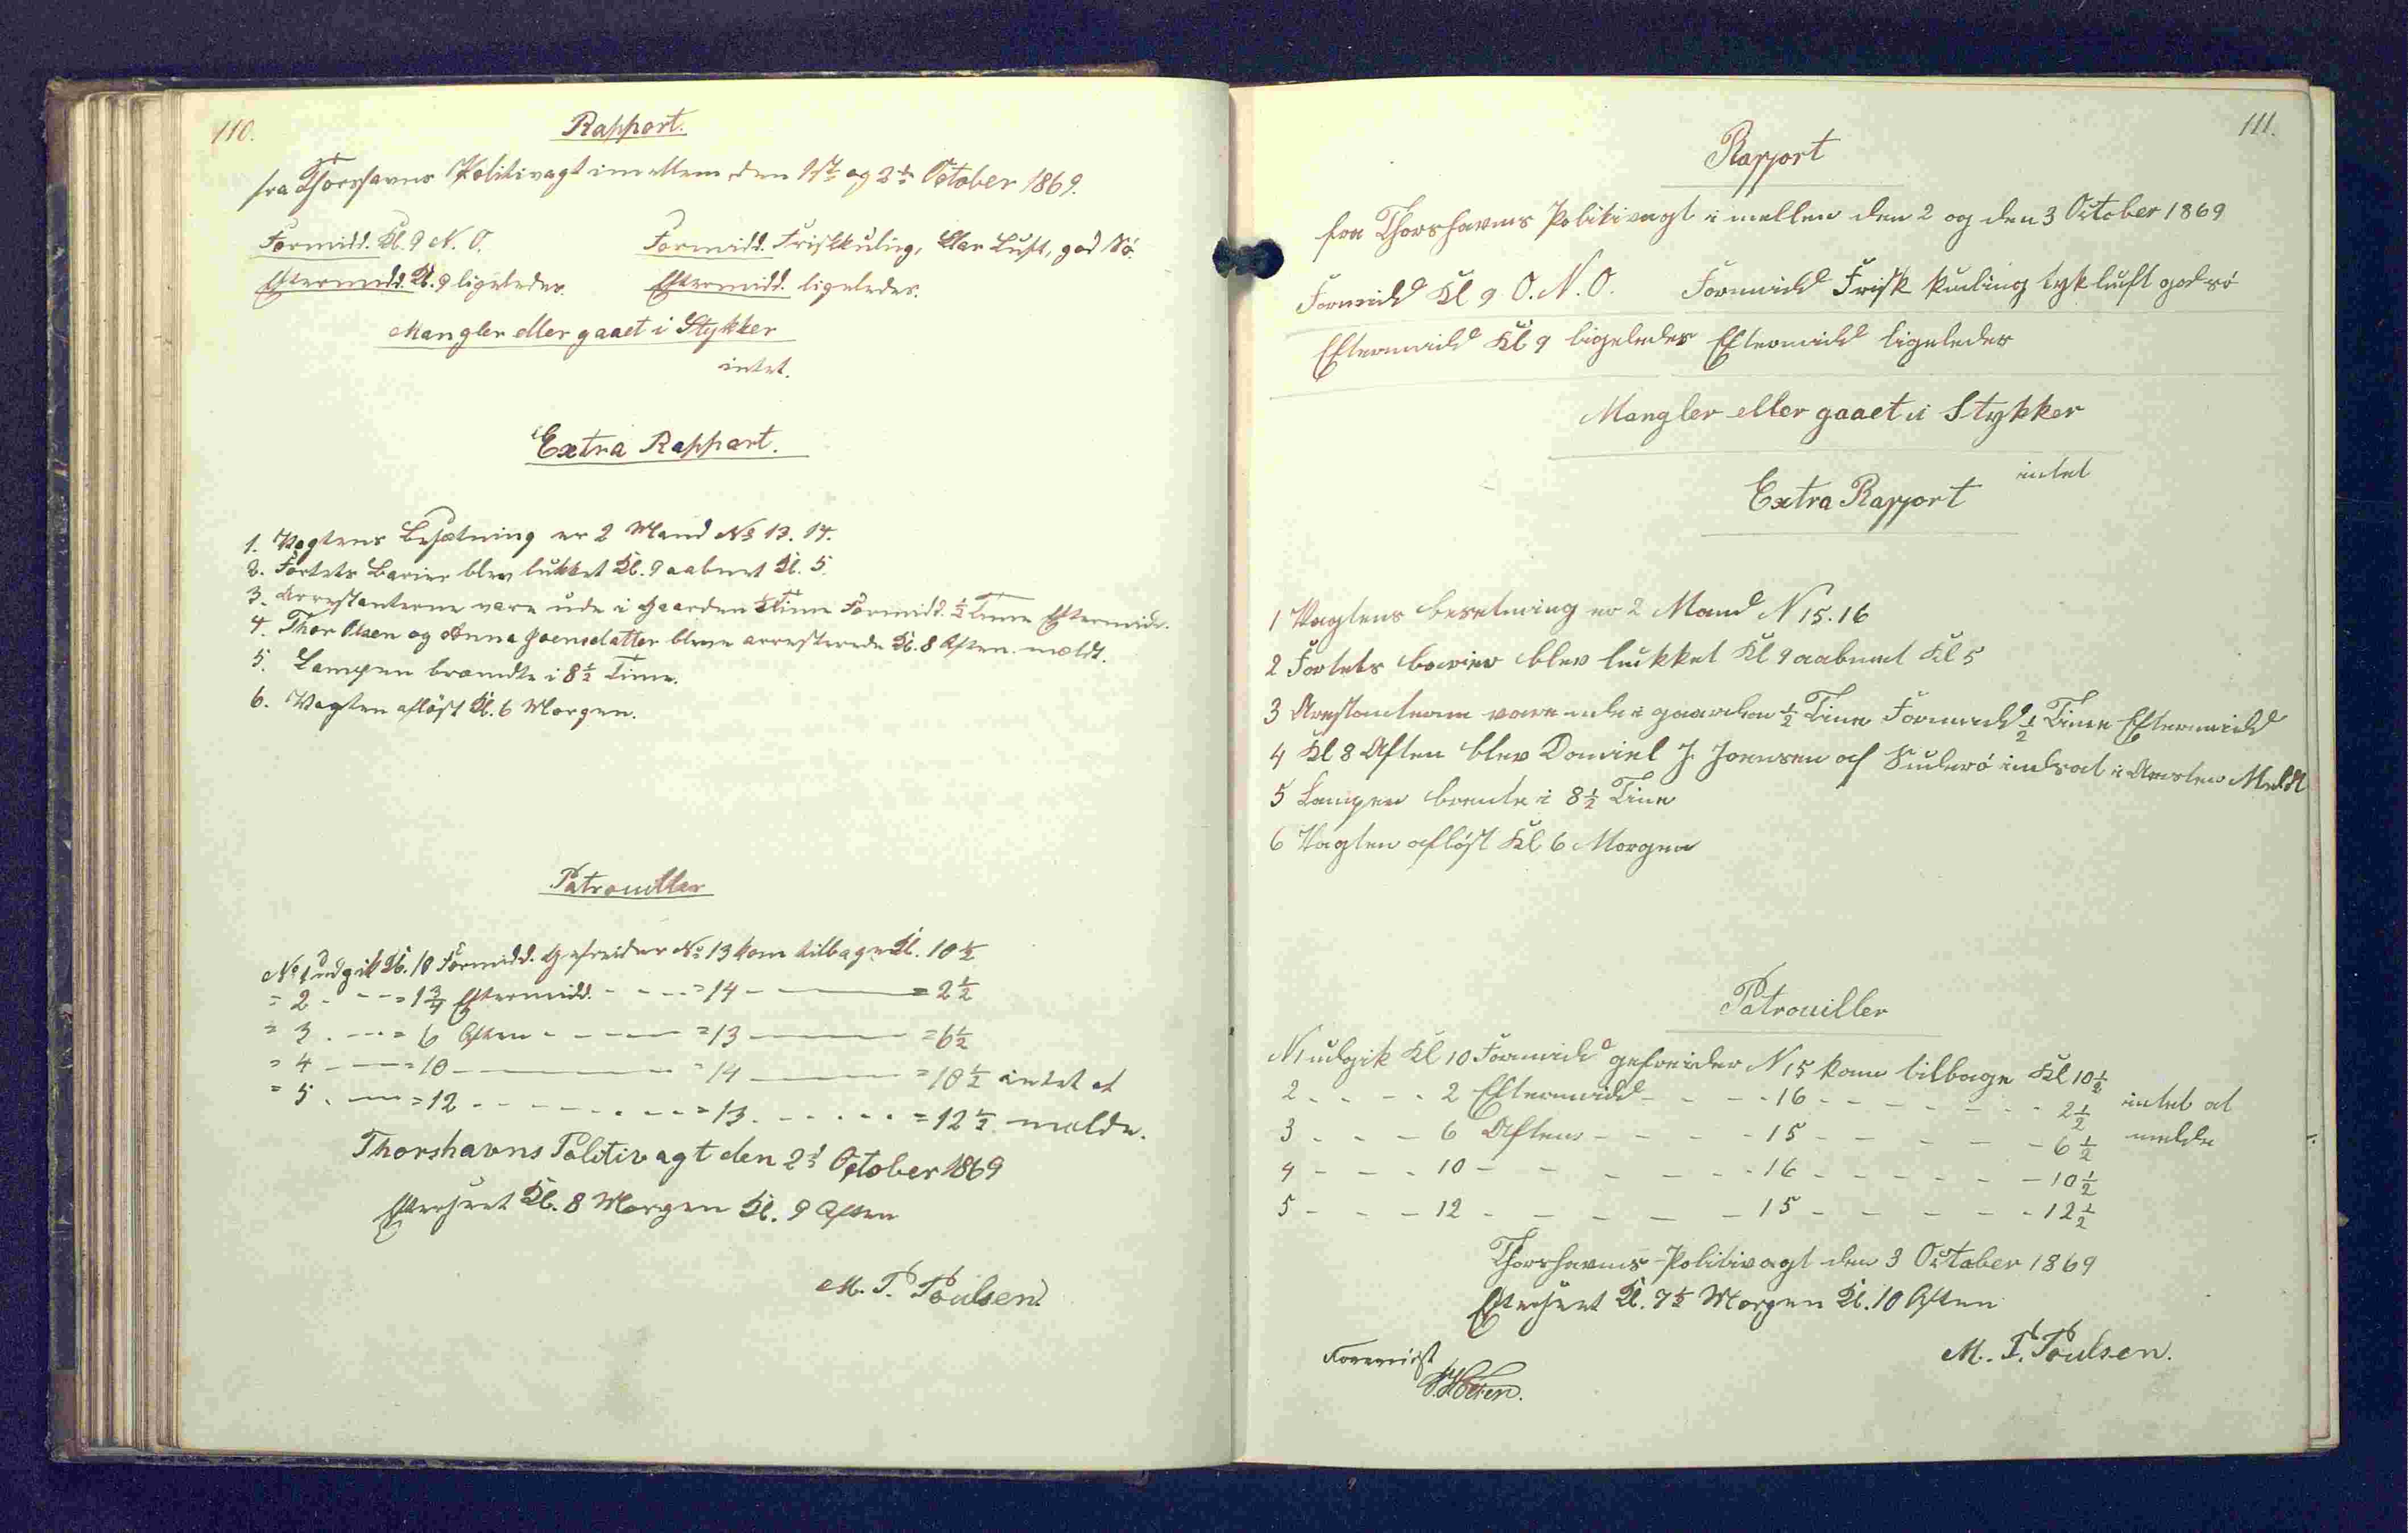 110.
Rapport.
fra Thorshavns Politivagt imellem den 1ste og 2den October 1869.
Formidd. Kl. 9 N. O. Formidd. Friskkuling, klar Luft, god Sø.
Eftermidd. Kl. 9 ligeledes. Eftermidd. ligeledes.
Mangler eller gaaet i Stykker
intet.
Extra Rapport.
1. Vagtens Besætning er 2 Mand No 13. 14.
2. Fortets Barier blev lukket Kl. 9 aabnet Kl. 5.
3. Arrestanterne vare ude i Gaarden ½ Time Formidd. ½ Time Eftermidd.
4. Thor Olsen og Anna Joensdatter bleve arresterede Kl. 8 Aften. meldt.
5. Lampen brændte i 8½ Time.
6. Vagten afløst Kl. 6 Morgen.
Patrouiller
No 1 udgik Kl. 10 Formidd. Gefreider No 13 kom tilbage Kl. 10½
= 2 - - - = 1¾ Eftermidd. - - - = 14 - = 2½
= 3 - - - = 6 Aften - - - = 13 - = 6½
= 4 - - - = 10 - = 14 - = 10½ intet at
= 5 - - - = 12 - - - - - = 13 - - - - = 12½ melde.
Thorshavns Politivagt den 2d October 1869
Efterseet Kl. 8 Morgen Kl. 9 Aften
M. P. Poulsen.
111.
Rapport
fra Thorshavns Politivagt i mellen den 2 og den 3 October 1869
Formidd Kl 9 O. N. O. Formidd Frisk kuling tyk luft god sø
Eftermidd Kl 9 ligeledes Eftermidd ligeledes
Mangler eller gaaet i Stykker
intet
Extra Rapport
1 Vagtens besetning er 2 Mand N 15. 16
2 Fortets barier blev lukket Kl 9 aabnet Kl 5
3 Arestanterne vare ude i gaarden ½ Time Formidd ½ Time Eftermidd
4 Kl 8 Aften blev Daniel J. Joensen af Suderø indsat i Aresten Meldt
5 Lampen brente i 8½ Time
6 Vagten afløst Kl 6 Morgen
Patrouiller
N 1 udgik Kl 10 Formidd gefreider N 15 kom tilbage Kl 10½
2 - - - - 2 Eftermidd - - - - 16 - - - - - - 2½ intet at
3 - - - 6 Aften - - - - 15 - - - - - 6½ melde
4 - - - 10 - - - - - 16 - - - - - 10½
5 - - - 12 - - - - - 15 - - - - - 12½
Thorshavns Politivagt den 3 October 1869
Efterseet Kl. 7½ Morgen Kl. 10 Aften
M. P. Poulsen.
Foreviist